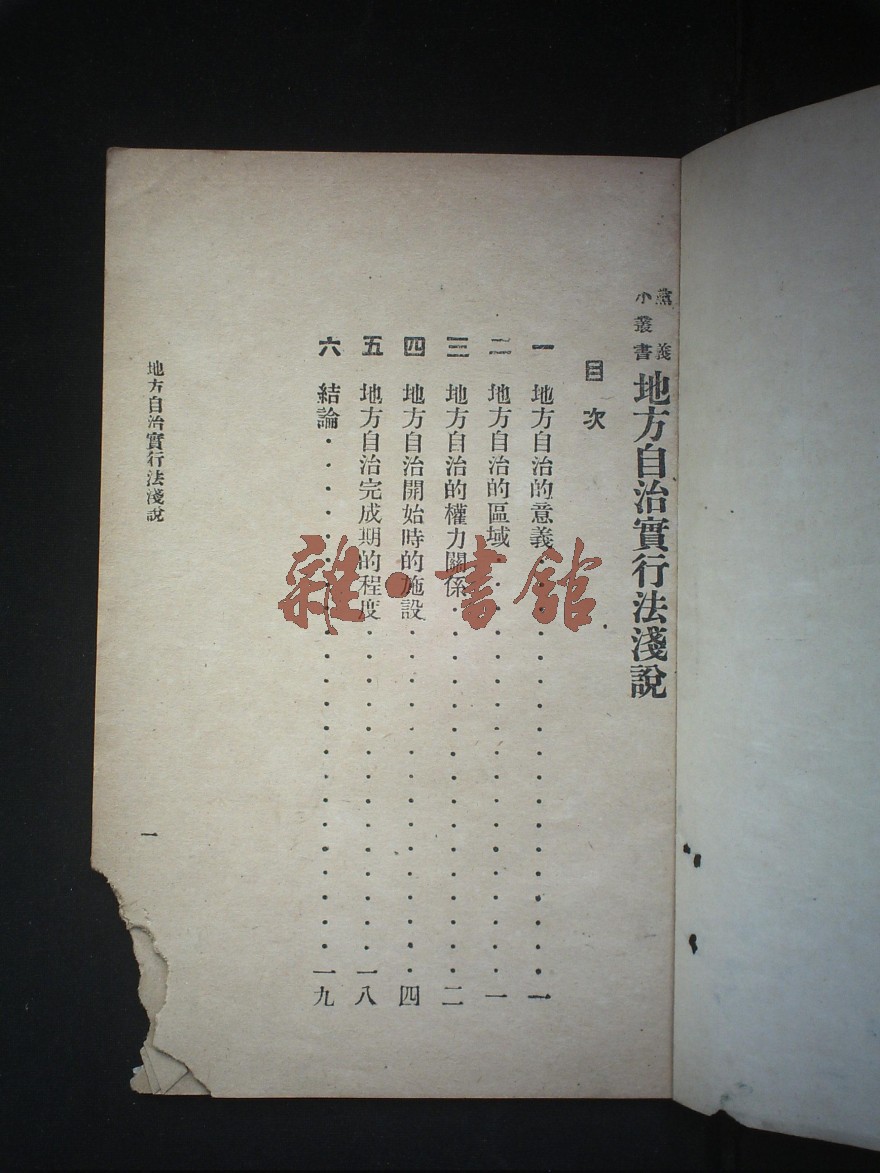 黨義
小叢書
地方自治實行法淺說
目次
一 地方自治的意義・・・・・・・・・・・・・・・・一
二 地方自治的區域・・・・・・・・・・・・・・・・一
三 地方自治的權力關係・・・・・・・・・・・・・・二
四 地方自治開始時的施設・・・・・・・・・・・・・四
五 地方自治完成期的程度・・・・・・・・・・・・・一八
六 結論・・・・・・・・・・・・・・・・・・・・一九
地方自治實行法淺說
一
雜・書館